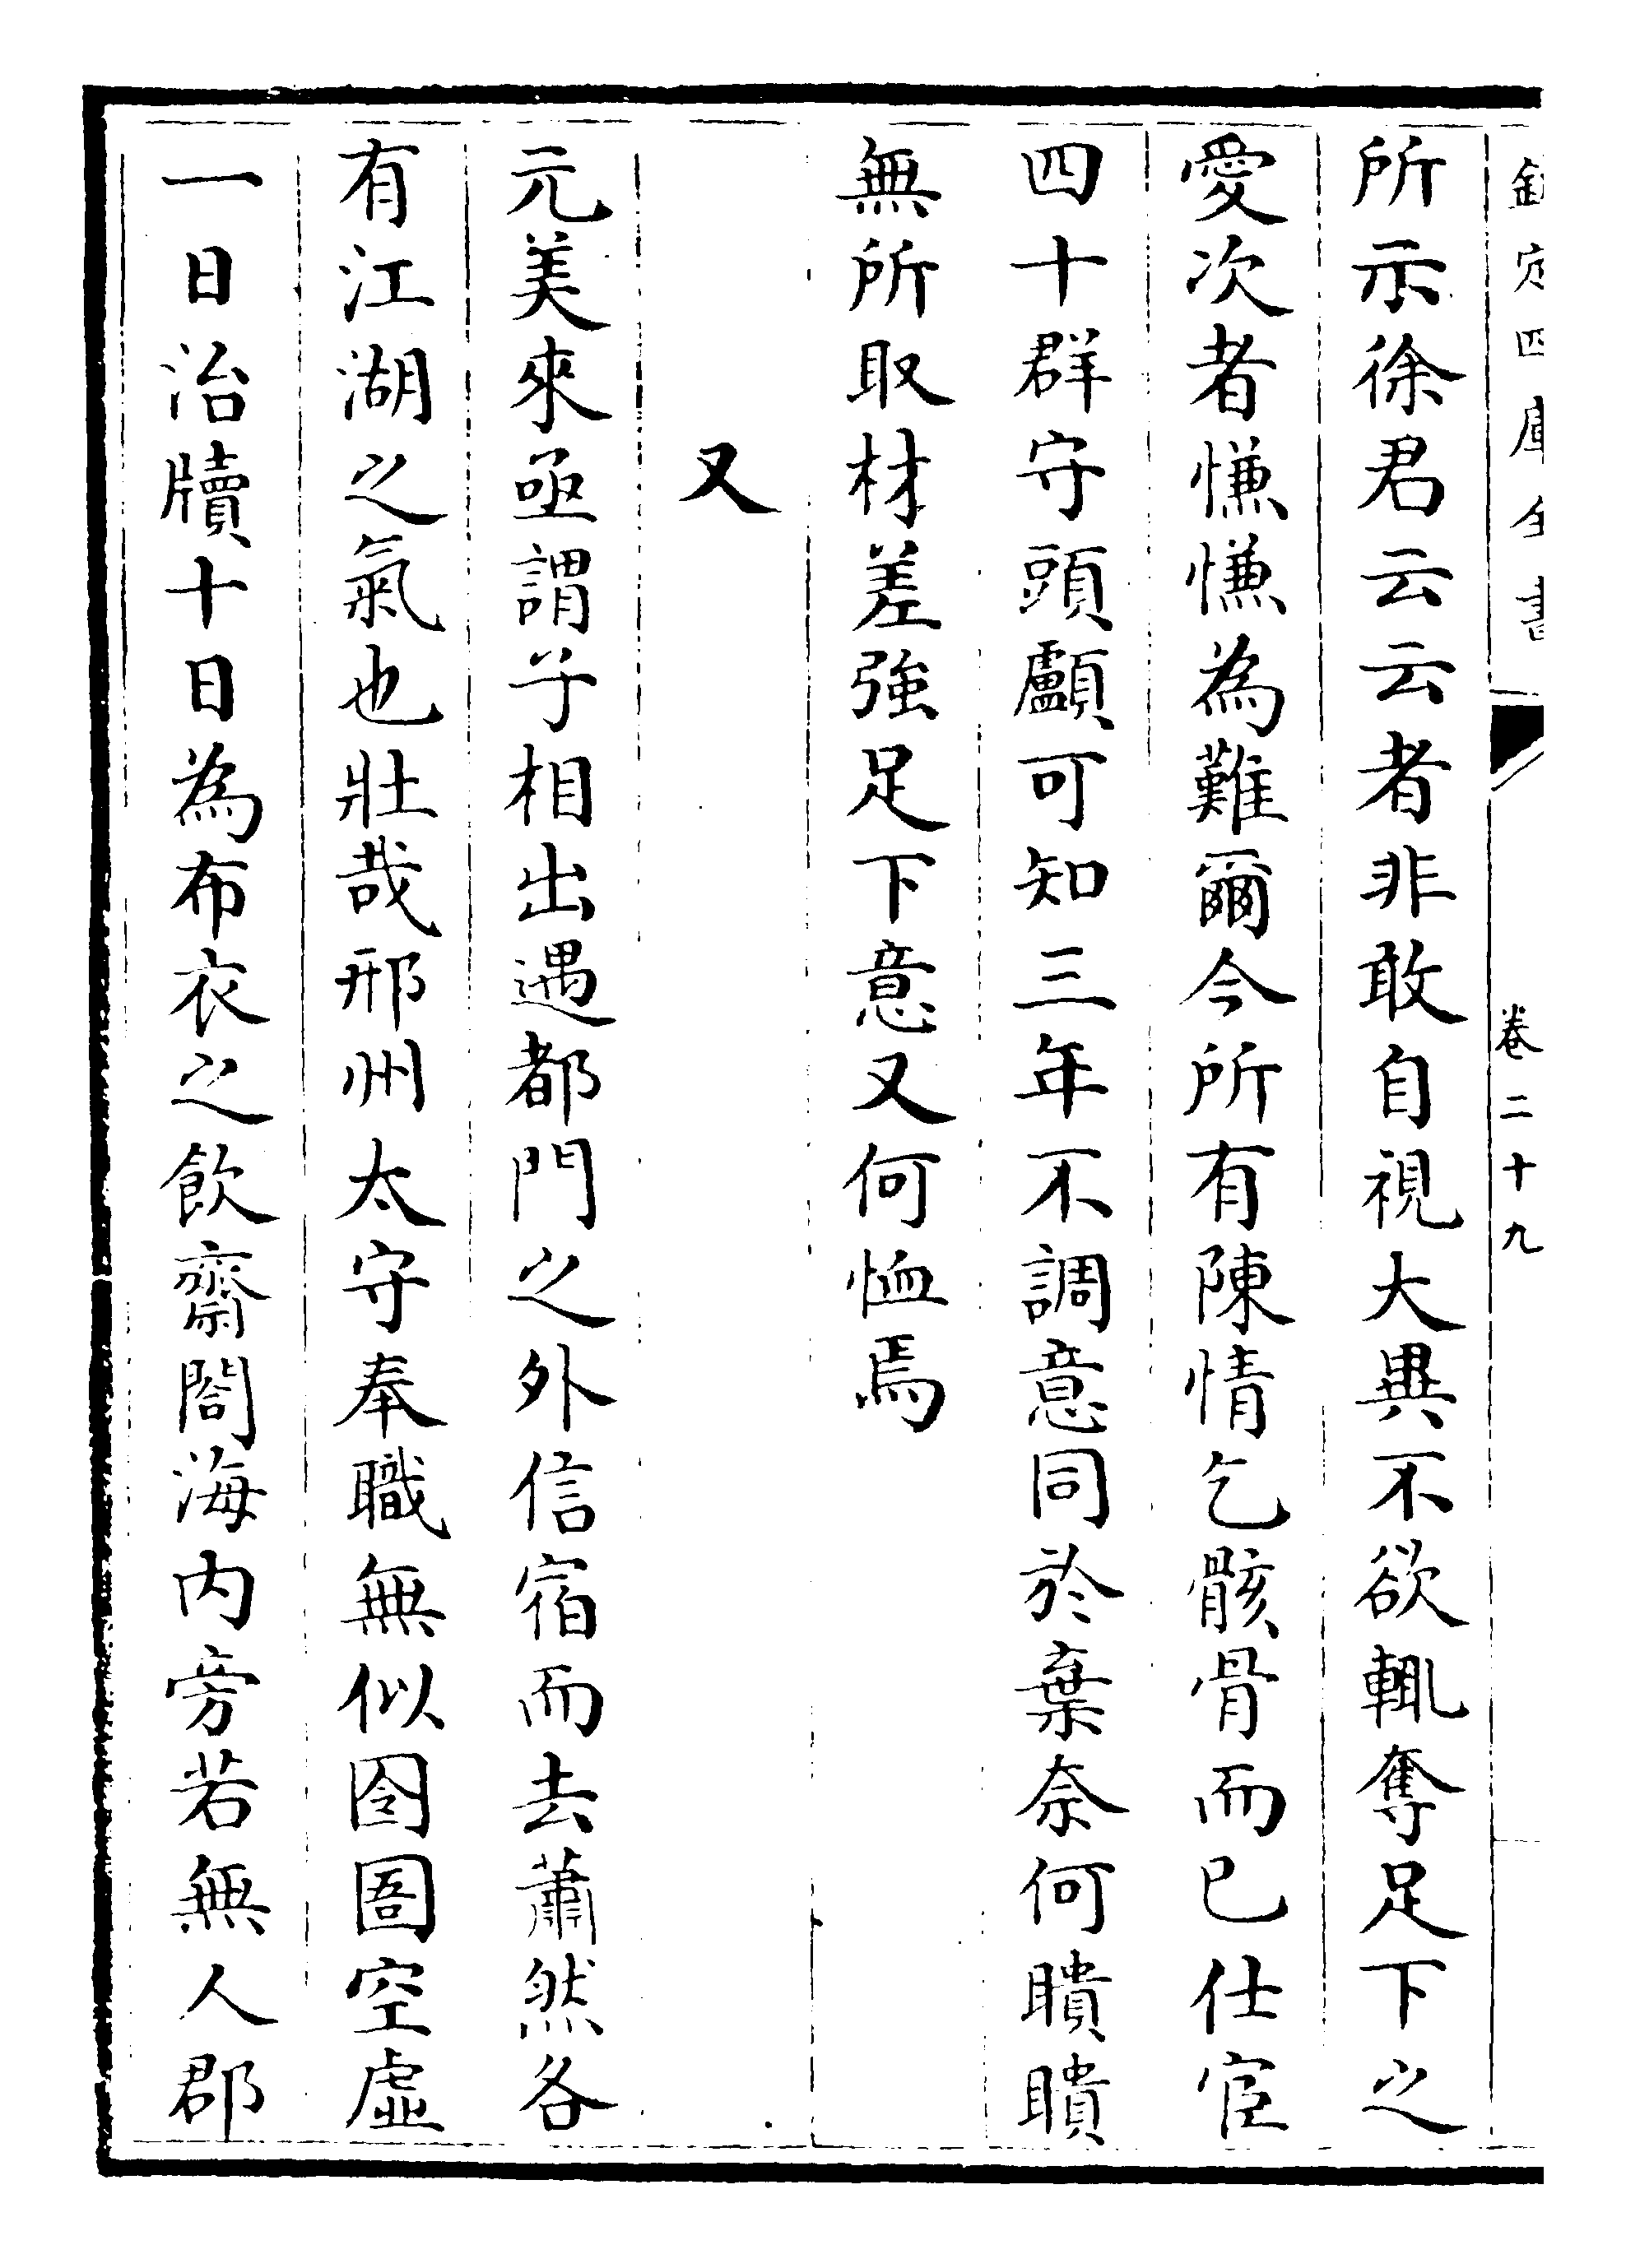 欽定四庫全書
卷二十九
所示徐君云云者非敢自視大異不欲輒奪足下之
愛次者慊慊為難爾今所有陳情乞骸骨而已仕宦
四十群守頭顱可知三年不調意同於棄奈何瞶瞶
無所取材差強足下意又何恤焉
又
元美來亟謂予相出遇都門之外信宿而去蕭然各
有江湖之氣也壯哉邢州太守奉職無似囹圄空虛
一日治牘十日為布衣之飲齋閤海內旁若無人郡